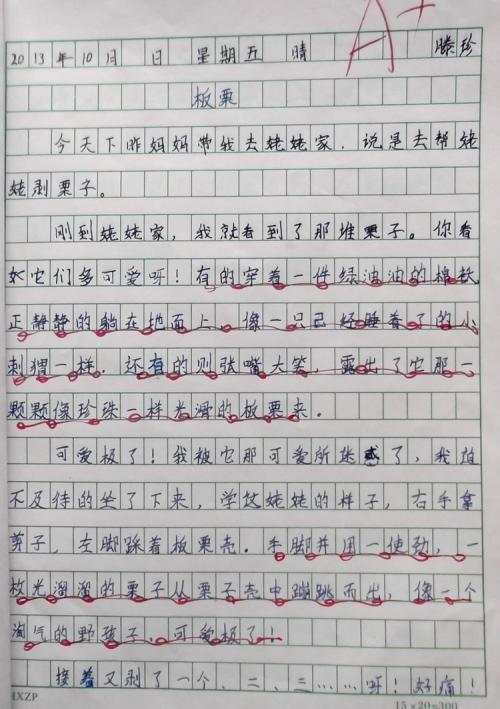 A+
2013年10月 日 星期五 晴 滕珍
板栗
今天下昨妈妈带我去姥姥家，说是去帮姥
姥剥栗子。
刚到姥姥家，我就看到了那堆栗子。你看
它们多可爱呀！有的穿着一件绿油油的棉袄
正静静的躺在地面上、像一只已经睡着了的小
刺猬一样．还有的则张嘴大笑，露出了它那一
颗颗像珍珠一样光滑的板栗来．
可爱极了！我被它那可爱所迷惑了，我迫
不及待的坐了下来，学这姥姥的样子，右手拿
剪子，左脚踩着板栗壳．手脚并用一使劲，一
枚光溜溜的栗子从栗子壳中蹦跳而出，像一个
淘气的野孩子．可爱极了！
接着又剥了一个、二、三……呀！好痛！
IXZP 15×20=300